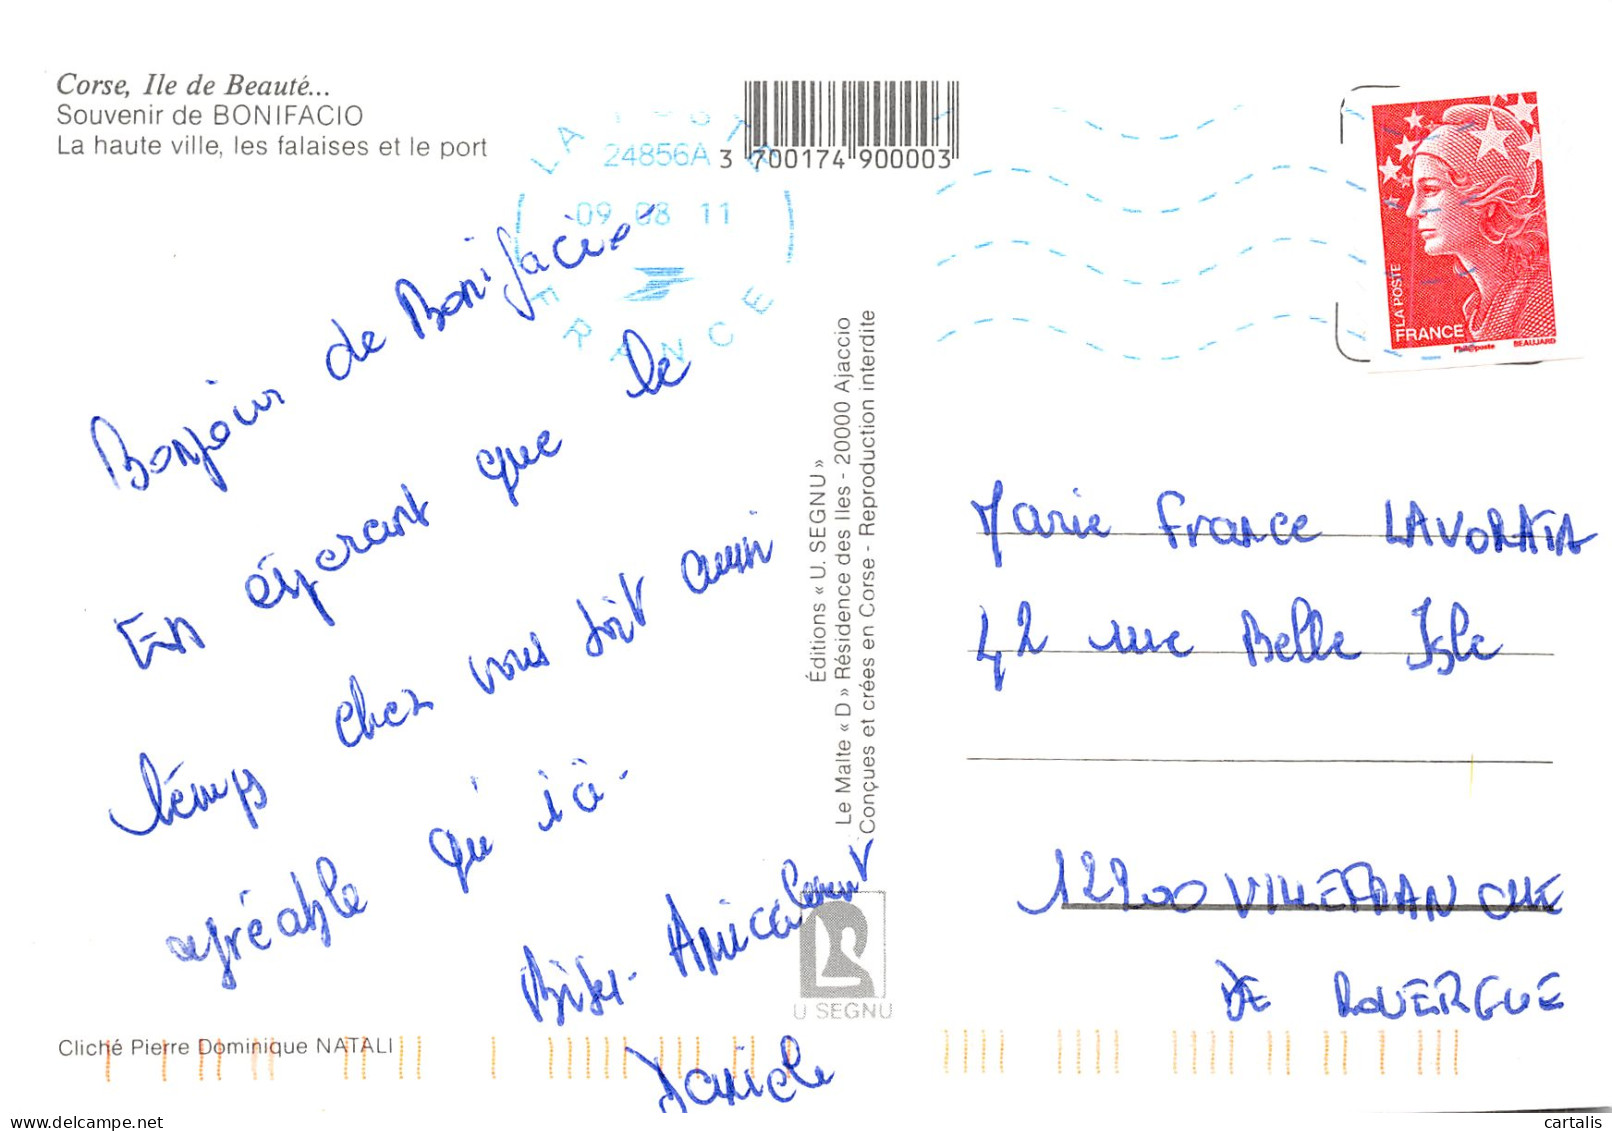 Corse, Ile de Beauté...
Souvenir de BONIFACIO
La haute ville, les falaises et le port
3 700174 900003
LA POSTE
24856A
09 08 11
FRANCE
LA POSTE
FRANCE
Philaposte BEAUJARD
Bonjour de Bonifacio
En éspérant que le
temps chez vous soit aussi
agréable qu'içi.
Bises. Amicalement
Daniele
Éditions « U. SEGNU »
Le Malte « D » Résidence des Iles - 20000 Ajaccio
Conçues et crées en Corse - Reproduction interdite
U SEGNU
Marie France
42 rue Belle Isle
12200 VILLEFRANCHE
DE ROUERGUE
Cliché Pierre Dominique NATALI
cartalis